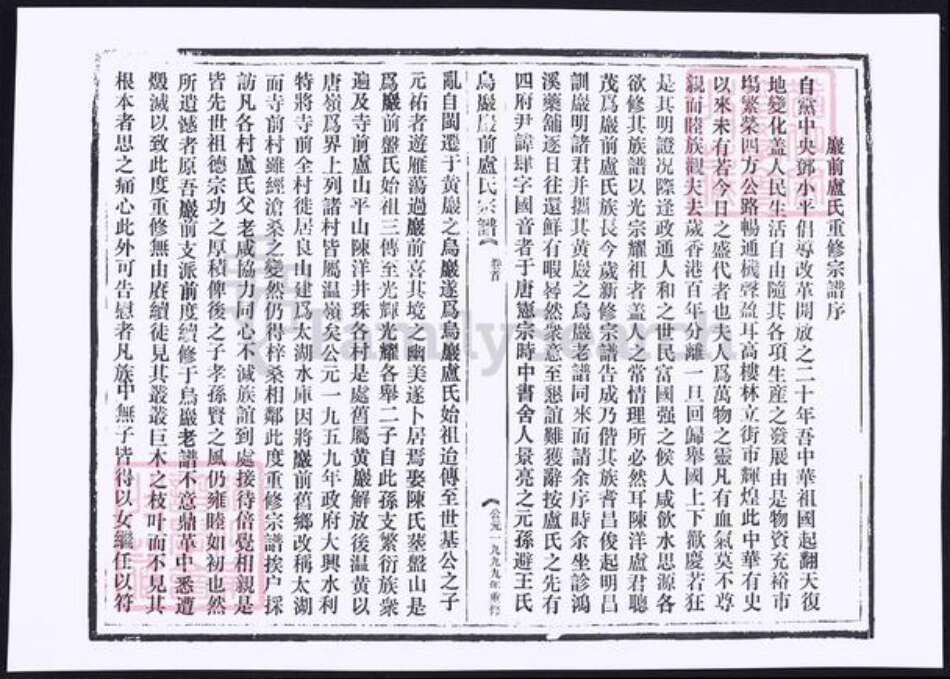 巖前盧氏重修宗譜序
自黨中央鄧小平倡導改革開放之二十年吾中華祖國起翻天復
地變化盖人民生活自由隨其各項生産之發展由是物資充裕市
場繁榮四方公路暢通機聲盈耳高樓林立街市輝煌此中華有史
以來未有若今日之盛代者也夫人爲萬物之靈凡有血氣莫不尊
親而睦族觀夫去歲香港百年分離一旦回歸舉國上下歡慶若狂
是其明證况際逢政通人和之世民富國强之候人咸飲水思源各
欲修其族譜以光宗耀祖者盖人之常情理所必然耳陳洋盧君聰
茂爲巖前盧氏族長今歲新修宗譜告成乃偕其族耆昌俊起明昌
訓巖明諸君并攜其黄巖之烏巖老譜同來而請余序時余坐診鴻
溪藥舖逐日往還鮮有暇晷然衆意至懇誼難獲辭按盧氏之先有
四府尹諱肆字國音者于唐懿宗時中書舍人景亮之元孫避王氏
烏巖巖前盧氏宗譜《 卷首 《公元一九九九年重修
亂自閩遷于黄巖之烏巖遂爲烏巖盧氏始祖迨傳至世基公之子
元祐者遊雁蕩過巖前喜其境之幽美遂卜居焉娶陳氏塟盤山是
爲巖前盤氏始祖三傳至光輝光耀各舉二子自此孫支繁衍族衆
遍及寺前盧山平山陳洋井珠各村是處舊屬黄巖解放後温黄以
唐嶺爲界上列諸村皆屬温嶺矣公元一九五九年政府大興水利
特將寺前全村徙居良山建爲太湖水庫因將巖前舊鄉改稱太湖
而寺前村雖經滄桑之變然仍得梓桑相鄰此度重修宗譜挨户採
訪凡各村盧氏父老咸協力同心不減族誼到處接待倍覺相親是
皆先世祖德宗功之厚積俾後之子孝孫賢之風仍雍睦如初也然
所遺憾者原吾巖前支派前度續修于烏巖老譜不意鼎革中悉遭
燬滅以致此度重修無由賡續徒見其叢叢巨木之枝叶而不見其
根本者思之痛心此外可告慰者凡族中無子皆得以女繼任以符